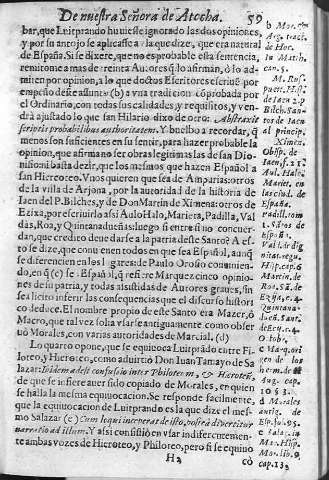 De nuestra Señora de Atocha. 59
bar, que Luitprando huuiesse ignorado las dos opiniones,
y por su antojo se aplicasse a la que dize, que era natural
de España. Si se dixere, que no es probable esta sentencia,
remitome a mas de treinta Autores q̃ lo afirman, ò lo ad-
miten por opinion, a lo que doctos Escritores escriuē por
empeño deste assunto (b) a vna tradicion cõprobada por
el Ordinario, con todas sus calidades, y requisitos, y ven-
drà ajustado lo que san Hilario dixo de otro: Abstraxit
scriptis probabilibus authoritatem. Y buelbo a recordar, q̃
menos son suficientes en su sentir, para hazer probable la
opinion, que afirma no ser obras legitimas las de san Dio-
nisio: ni basta dezir, que los mesmos que hazen Español a
san Hieroteo. Vnos quieren que sea de Ampurias: otros
de la villa de Arjona, por la autoridad de la historia de
Iaen del P. Bilches, y de Don Martin de Ximena: otros de
Ezija, por escriuirlo assi Aulo Halo, Mariera, Padilla, Val
dàs, Roa, y Quintanadueñas: luego si entre si no concuer-
dan, que credito deue darse a la patria deste Santo? A es-
to se dize, que conuienen todos en que sea Español, aunq̃
se diferencien en los lugares de Paulo Orosio comunmen-
do, en q̃ (c) se Español, q̃ refiere Marquez cinco opinio-
nes de su patria, y todas assistidas de Autores graues, sin
sea licito inferir las consequencias que el discurso histori
co deduce. El nombre propio de este Santo era Mazer, ò
Macro, que tal vez solia vsarse antiguamente como obser
uò Morales, con varias autoridades de Marcial. (d)
Lo quarto opone, que se equiuoca Luitprando entre Fi-
loteo, y Hieroteo, como aduirtiò Don Iuan Tamayo de Sa
lazar: Ibidem adest confusio inter Philoteum, & Hieroteũ,
de que se infiere auer sido copiado de Morales, en quien
se halla la mesma equiuocacion. Se responde facilmente,
que la equiuocacion de Luitprando es la que dize el mes-
mo Salazar (e) Cum sequi incæreras de isto, posteà diuertitur
narratio ad illum. Y assi consistiò en vsar indiferentemen-
te ambas vozes de Hieroteo, y Philoteo, pero si se equiuo
H2 cò
b Mor.
Arg. tract.
de Hor.
In Matth.
can. 5.
M. Rus-
puert. Hist.
de Iaen 2. p
Bilch. San-
tos de Iaen
al princip.
Ximena.
Obisp. de
Iaen, f. 12
Aul. Halo.
Marin. en
las ciud. de
España.
Padill. tom
1. Sãtos de
España.
Vald. de dig
nitat. regũ.
Hisp. cap. 6
Martin. de
Roa, Sã. de
Ezija, c. 4.
Quintana-
dueñ. Sant.
de
c Marquez
cap.
d Morales
de
Esp.
e Salaz. in
Mar. Hisp.
cap. 13.